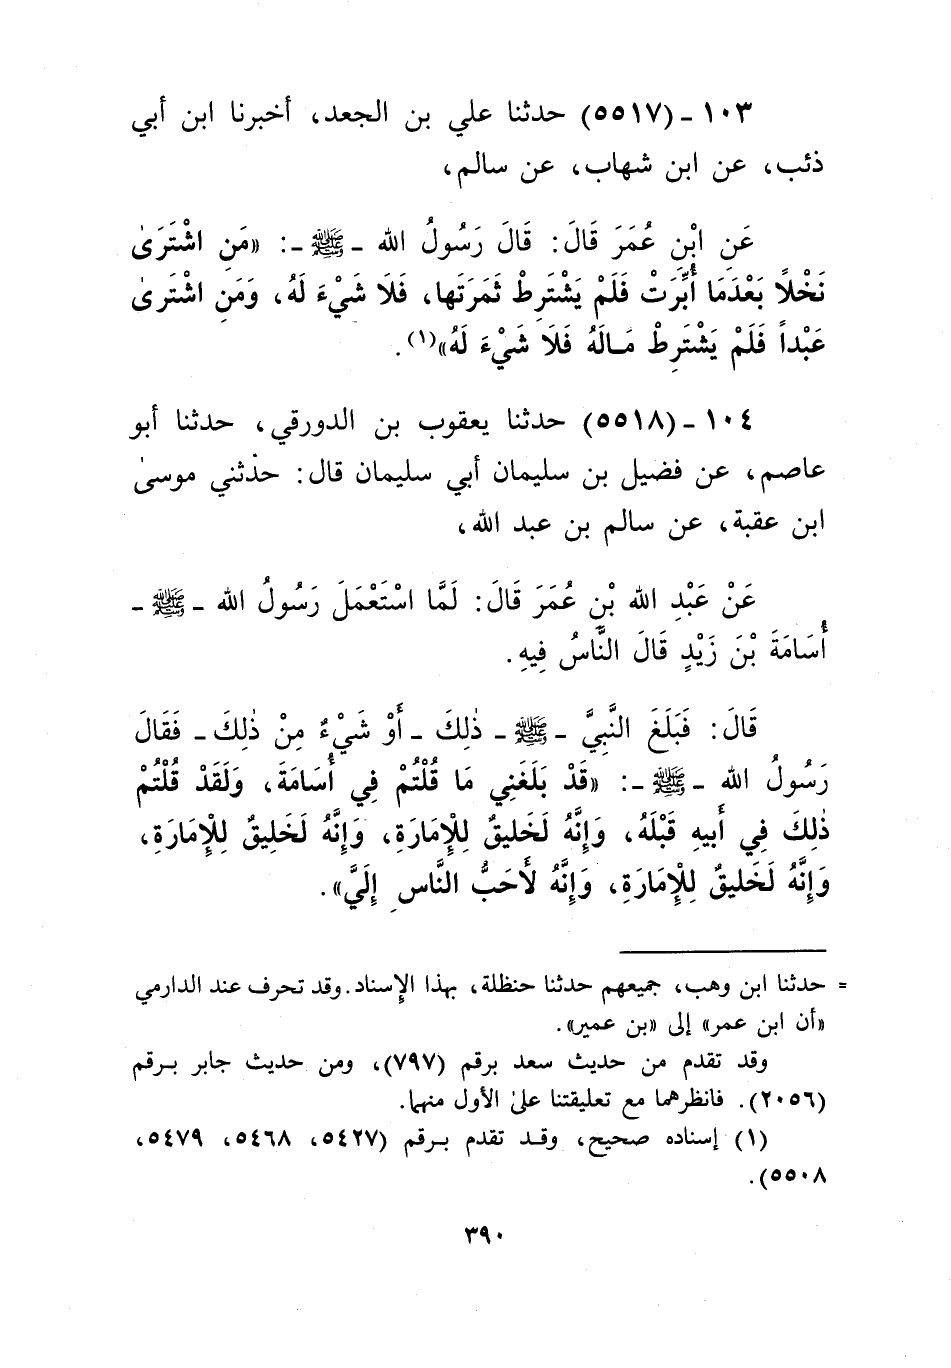 ١٠٣ - (٥٥١٧) حدثنا علي بن الجعد، أخبرنا ابن أبي
ذئب، عن ابن شهاب، عن سالم،
عَنِ ابْنِ عُمَرَ قَالَ: قَالَ رَسُولُ الله - ﷺ -: «مَنِ اشْتَرَىٰ
نَخْلاً بَعْدَمَا أُبِّرَتْ فَلَمْ يَشْتَرِطْ ثَمَرَتَها، فَلَا شَيْءَ لَهُ، وَمَنِ اشْتَرىٰ
عَبْداً فَلَمْ يَشْتَرِطْ مَـالَهُ فَلَا شَيْءَ لَهُ»(١).
١٠٤ - (٥٥١٨) حدثنا يعقوب بن الدورقي، حدثنا أبو
عاصم، عن فضيل بن سليمان أبي سليمان قال: حدثني موسىٰ
ابن عقبة، عن سالم بن عبد الله،
عَنْ عَبْدِ الله بْنِ عُمَرَ قَالَ: لَمَّا اسْتَعْمَلَ رَسُولُ الله - ﷺ -
أُسَامَةَ بْنَ زَيْدٍ قَالَ النَّاسُ فِيهِ.
قَالَ: فَبَلَغَ النَّبِيَّ - ﷺ - ذٰلِكَ - أَوْ شَيْءٌ مِنْ ذٰلِكَ - فَقَالَ
رَسُولُ الله - ﷺ -: «قَدْ بَلَغَنِي مَا قُلْتُمْ فِي أُسَامَةَ، وَلَقَدْ قُلْتُمْ
ذٰلِكَ فِي أَبِيهِ قَبْلَهُ، وَإِنَّهُ لَخَلِيقٌ لِلْإِمَارَةِ، وَإِنَّهُ لَخَلِيقٌ لِلْإِمَارَةِ،
وَإِنَّهُ لَخَلِيقٌ لِلْإِمَارَةِ، وَإِنَّهُ لَأَحَبُّ النَّاسِ إِلَيَّ».
= حدثنا ابن وهب، جميعهم حدثنا حنظلة، بهذا الإسناد. وقد تحرف عند الدارمي
«أن ابن عمر» إلى «بن عمير».
وقد تقدم من حديث سعد برقم (٧٩٧)، ومن حديث جابر بـرقم
(٢٠٥٦). فانظرهما مع تعليقتنا علىٰ الأول منهما.
(١) إسناده صحيح، وقـد تقدم بـرقم (٥٤٢٧، ٥٤٦٨، ٥٤٧٩،
٥٥٠٨).
٣٩٠